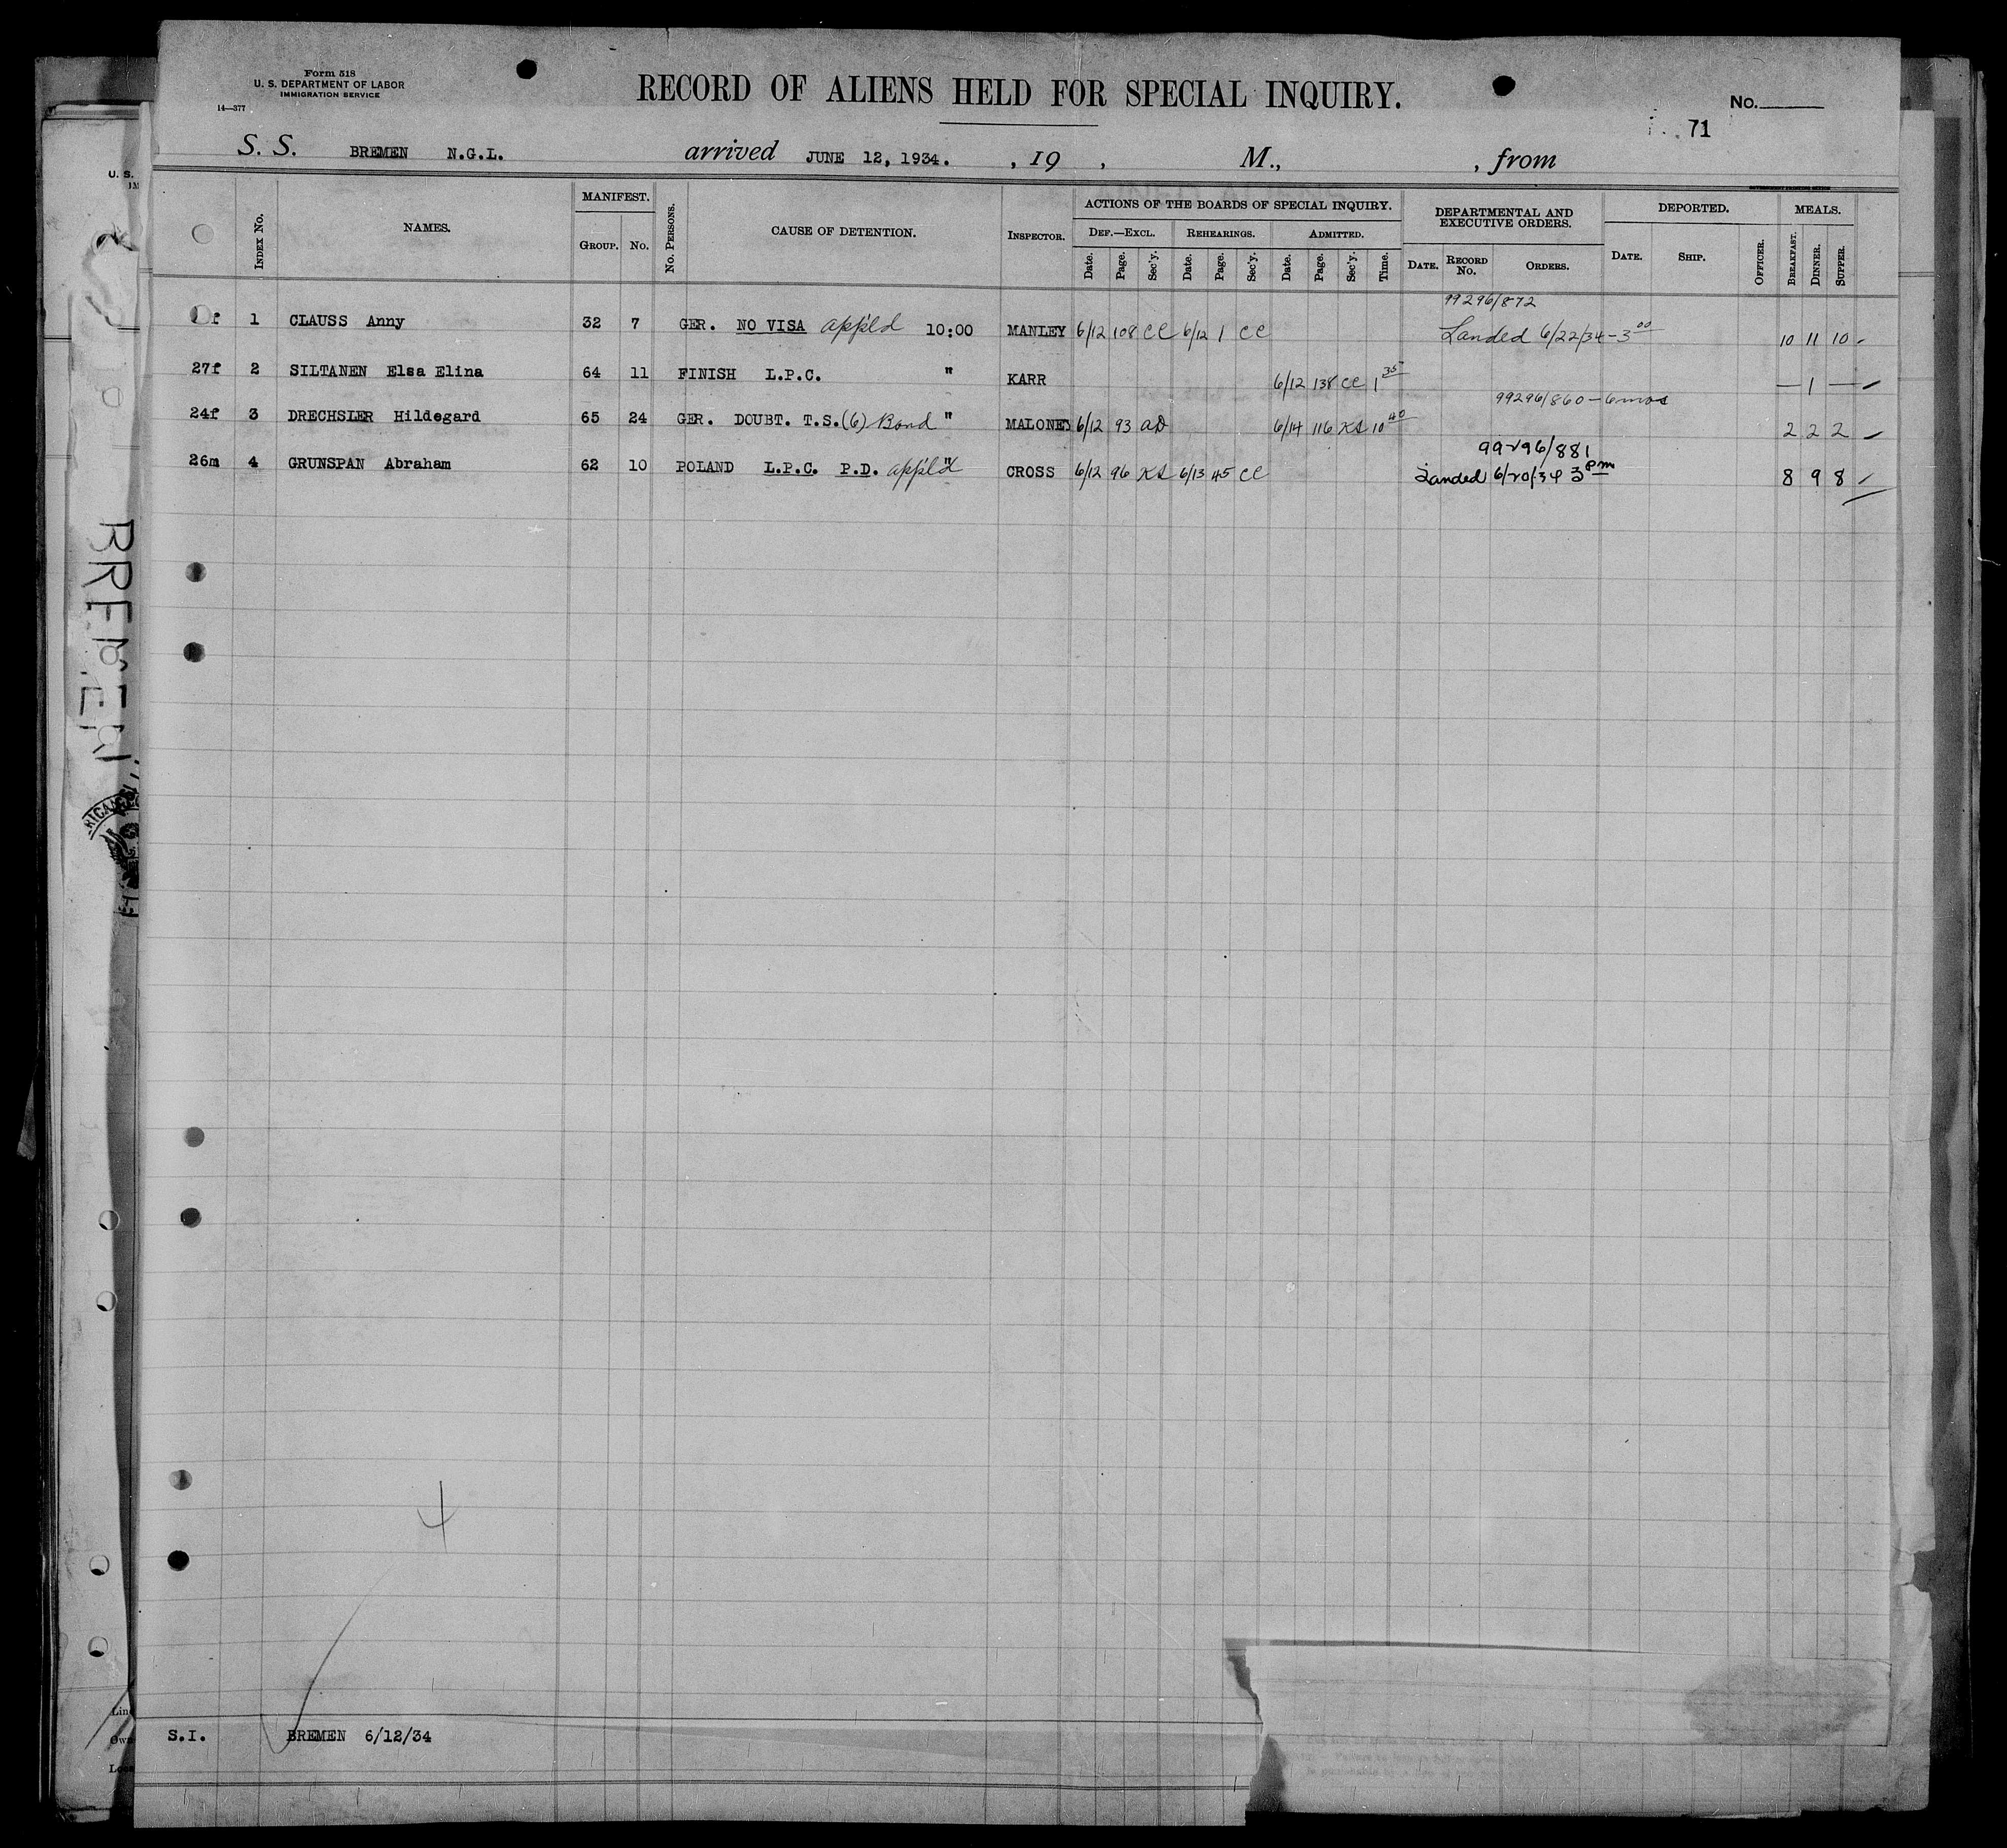 Form 518
U. S. DEPARTMENT OF LABOR
IMMIGRATION SERVICE
14—377
RECORD OF ALIENS HELD FOR SPECIAL INQUIRY.
No.
71
S. S. BREMEN N.G.L. arrived JUNE 12, 1934. , 19 , M., , from
U. S.
MANIFEST. ACTIONS OF THE BOARDS OF SPECIAL INQUIRY. DEPARTMENTAL AND EXECUTIVE ORDERS. DEPORTED. MEALS.
INDEX No. NAMES. GROUP. No. No. PERSONS. CAUSE OF DETENTION. INSPECTOR. DEF.—EXCL. REHEARINGS. ADMITTED.
Date. Page. Sec'y. Date. Page. Sec'y. Date. Page. Sec'y. Time. DATE. RECORD No. ORDERS. DATE. SHIP. OFFICER. BREAKFAST. DINNER. SUPPER.
99296/872
f 1 CLAUSS Anny 32 7 GER. NO VISA app'ld 10:00 MANLEY 6/12 108 CC 6/12 1 CC Landed 6/22/34-3 00 10 11 10
27f 2 SILTANEN Elsa Elina 64 11 FINISH L.P.C. " KARR 6/12 138 CC 1 35 — 1 —
99296/860-6mos
24f 3 DRECHSLER Hildegard 65 24 GER. DOUBT. T.S. (6) Bond " MALONEY 6/12 93 AD 6/14 116 KS 10 40 2 2 2
99296/881
26m 4 GRUNSPAN Abraham 62 10 POLAND L.P.C. P.D. app'ld " CROSS 6/12 96 KS 6/13 45 CC Landed 6/20/34 3 PM 8 9 8
BREMEN
4
S.I. BREMEN 6/12/34